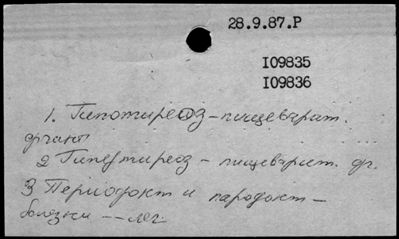 28.9.87.Р
I09835
I09836
1. Гипотиреоз – пищеварит.
2 Гипертиреоз – пищеварит.
3 Периодонт и пародонт –
болезни – – лег